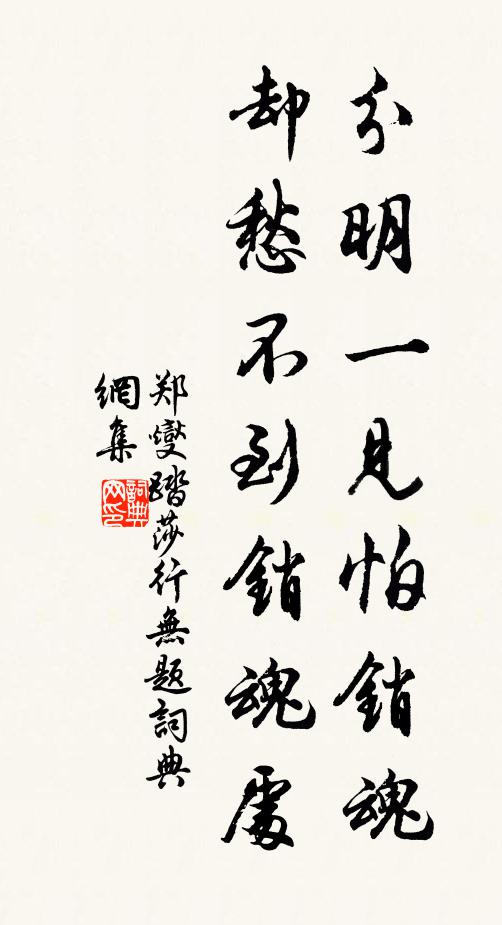 分明一見怕銷魂
却愁不到銷魂處
郑燮踏莎行無题詞典
網集
詞典
网印